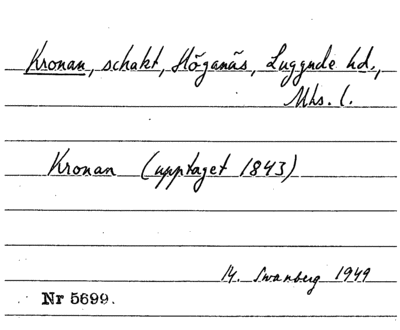 Kronan, schakt, Höganäs, Luggude hd.,
Mhs. l.
Kronan (upptaget 1843)
14. Swanberg 1949
Nr 5699.